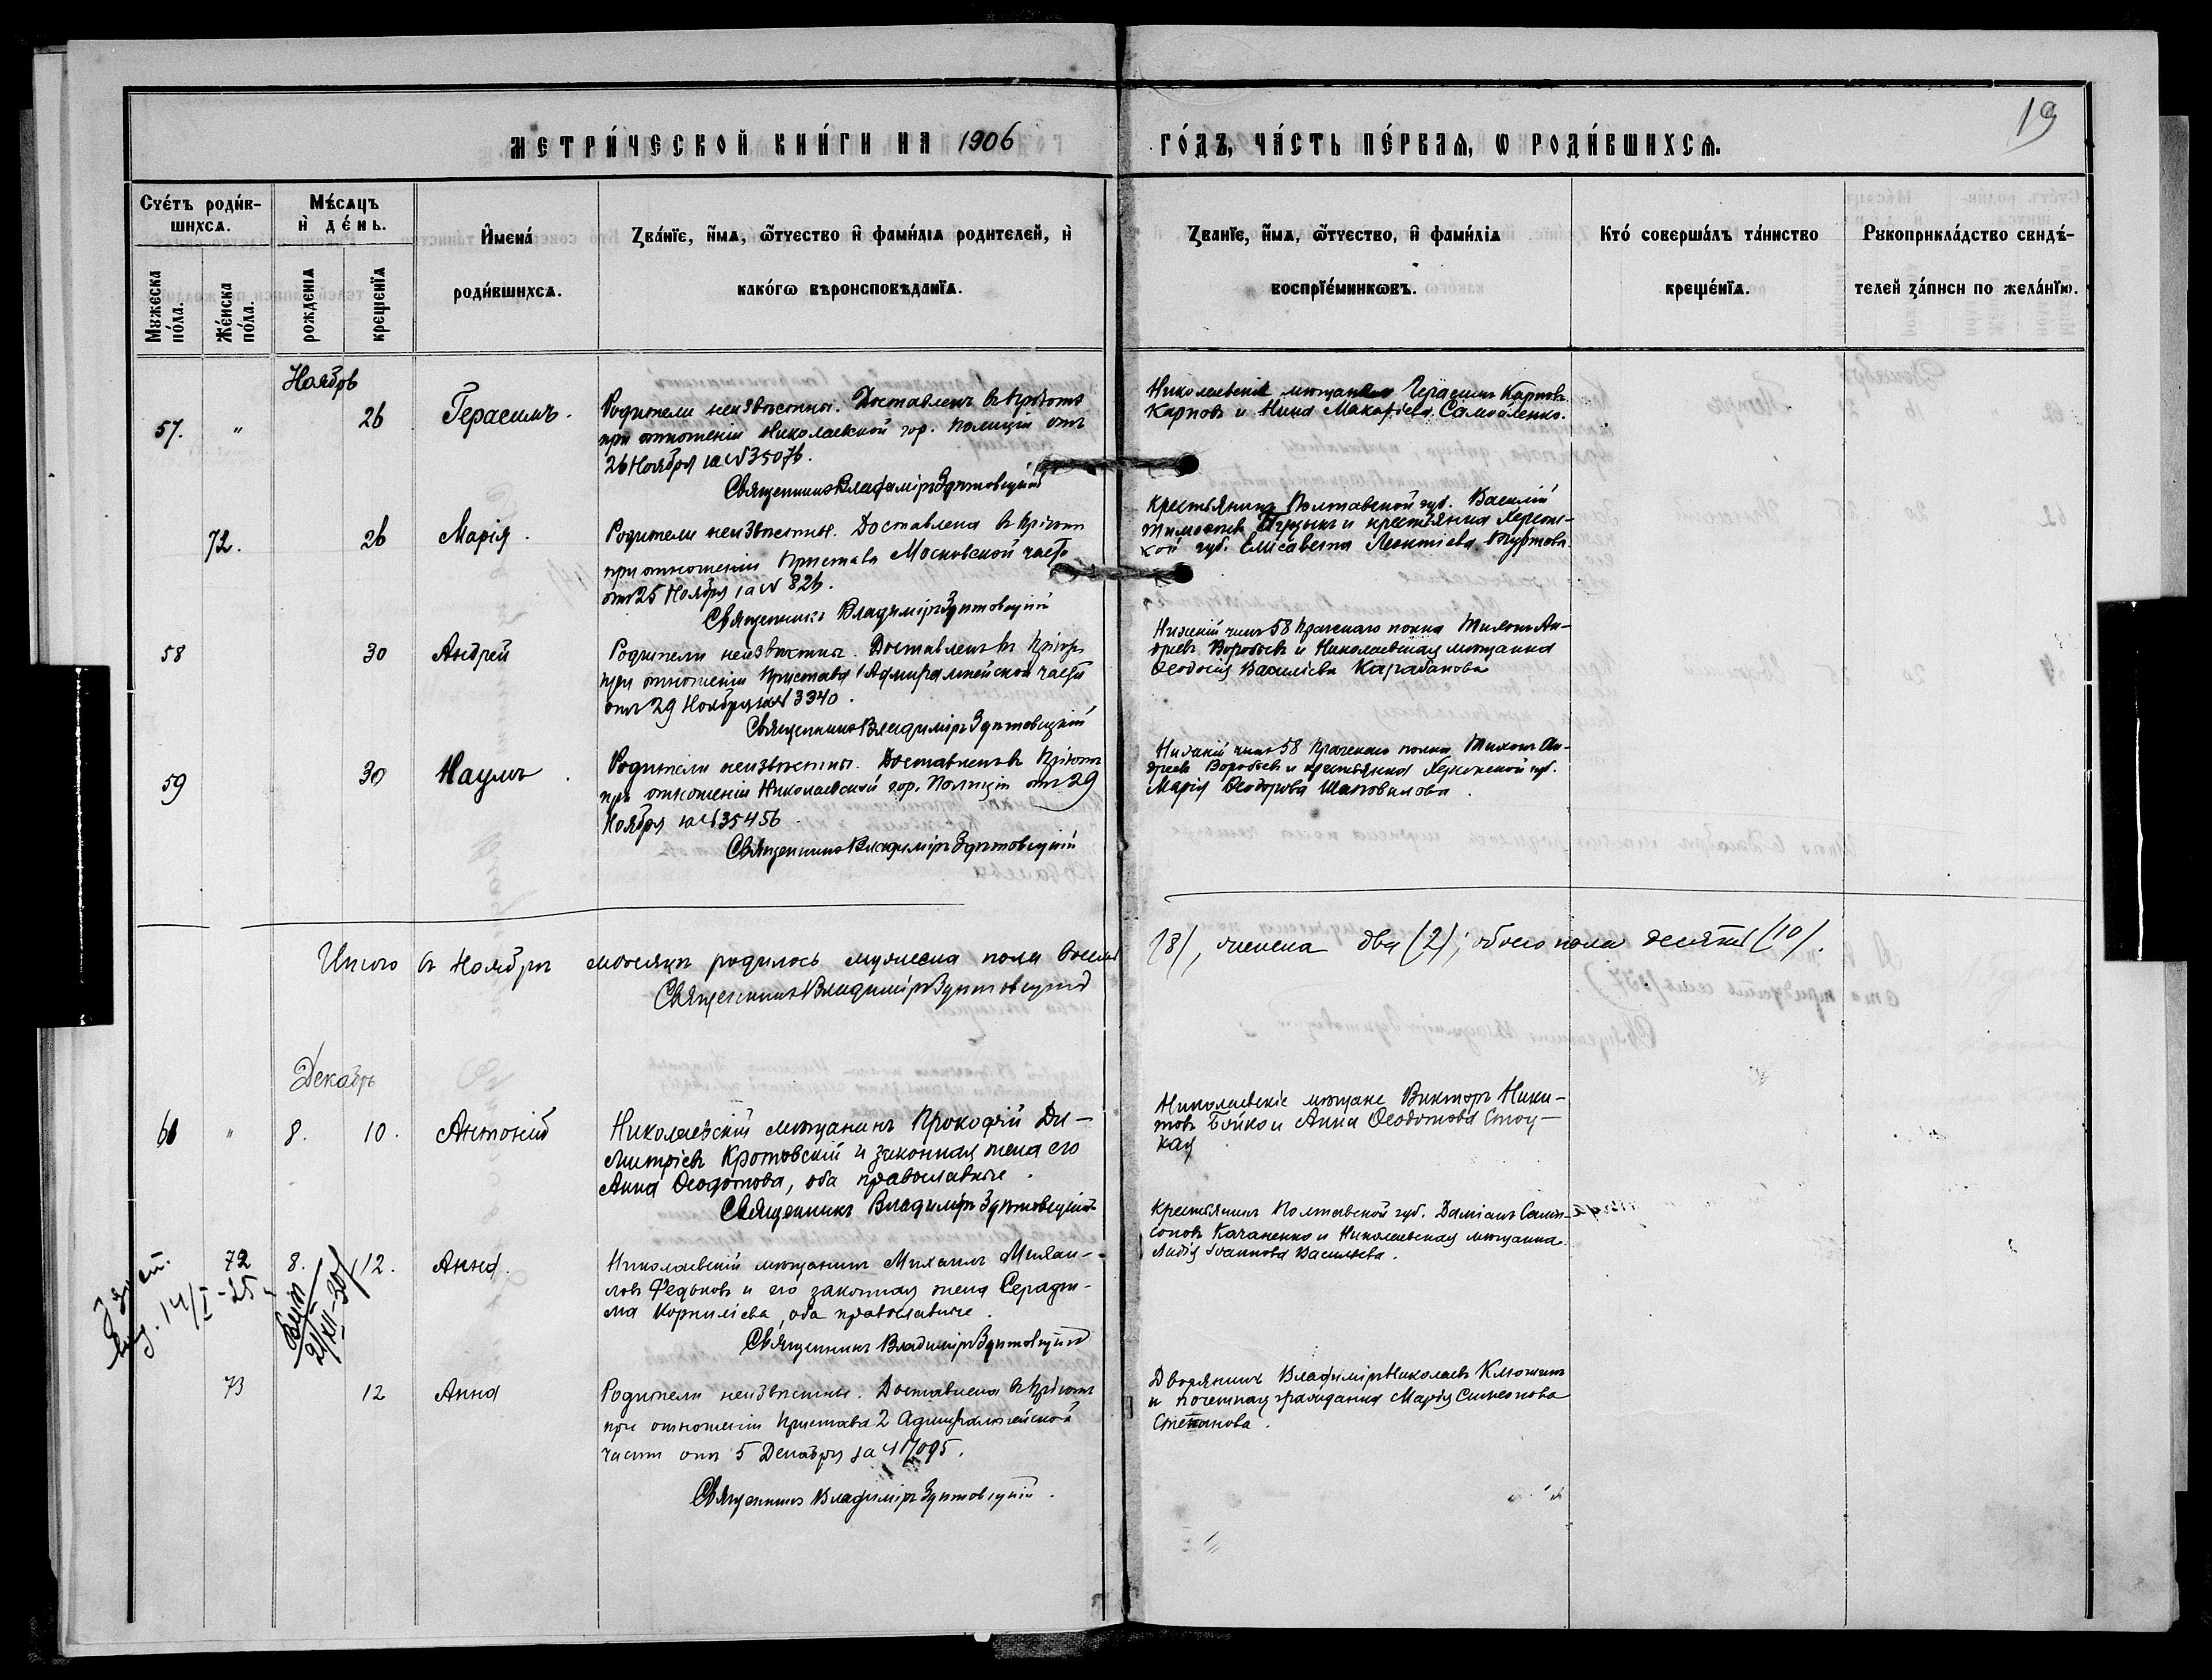 19
МЕТРИ́ЧЕСКОЙ КНИ́ГИ НА 1906 ГО́ДЪ, ЧА́СТЬ ПЕ́РВАѦ, Ѡ РОДИ́ВШИХСѦ.
Сче́тъ роди́в-
шихсѧ.
Мꙋжеска по́ла.
Же́нска по́ла.
Мѣ́сѧцъ
и҆ де́нь.
рожденїѧ
крещенїѧ
И҆мена́
роди́вшихсѧ.
Зва́нїе, и҆́мѧ, ѻ҆́тчество и҆ фами́лїѧ родителей, и҆
како́гѡ вѣроисповѣданїѧ.
Званїе, и҆́мѧ, ѻ҆́тчество, и҆ фами́лїѧ
воспрїе́мникѡвъ.
Кто́ соверша́лъ та́инство
креще́нїѧ.
Рꙋкоприкла́дство свидѣ́-
телей за́писи по жела́нїю.
Ноябрь
57. " 26 Герасимъ.
Родители неизвѣстны. Доставленъ въ пріютъ
при отношеніи Николаевской гор. Полиціи отъ
26 Ноября за № 35076.
Священникъ Владиміръ
Николаевскіе мѣщане Герасимъ Карповъ
Карповъ и Нина Макаріева Самойленко.
72. 26 Марія.
Родители неизвѣстны. Доставлена въ пріютъ
при отношеніи Пристава Московской части
отъ 25 Ноября за № 826.
Священникъ Владиміръ
Крестьянинъ Полтавской губ. Василій
Тимофеевъ и крестьянка Херсон-
ской губ. Елисавета Леонтіева
58 30 Андрей
Родители неизвѣстны. Доставленъ въ пріютъ
при отношеніи Пристава 1 Адмиралтейской части
отъ 29 Ноября за № 3340.
Священникъ Владиміръ
Нижній чинъ 58 Пражскаго полка Тихонъ Ан-
дреевъ Воробьевъ и Николаевская мѣщанка
Ѳеодосія Василіева Карабанова
59 30 Наумъ.
Родители неизвѣстны. Доставленъ въ пріютъ
при отношеніи Николаевской гор. Полиціи отъ 29
Ноября за № 35456.
Священникъ Владиміръ
Нижній чинъ 58 Пражскаго полка Тихонъ Ан-
дреевъ Воробьевъ и крестьянка Херсонской губ.
Марія Ѳеодорова Шаповалова.
Итого въ Ноябрѣ мѣсяцѣ родилось мужеска пола восемь (8), женска два (2); обоего пола десять (10).
Священникъ Владиміръ
Декабрь
60 " 8. 10. Антоній
Николаевскій мѣщанинъ Прокофій Ди-
митріевъ Кротовскій и законная жена его
Анна Ѳеодотова, оба православные.
Священникъ Владиміръ
Николаевскіе мѣщане Викторъ Ники-
товъ Бойко и Анна Ѳеодотова Стоц-
кая
72 8. 12. Анна.
Николаевскій мѣщанинъ Михаилъ Михаи-
ловъ Федьковъ и его законная жена Серафи-
ма Корниліева, оба православные.
Священникъ Владиміръ
Крестьянинъ Полтавской губ. Даміанъ Самп-
соновъ Качаненко и Николаевская мѣщанка
Лидія Іоаннова Васильева.
14/I-25
21/XII-30
73 12 Анна
Родители неизвѣстны. Доставлена въ пріютъ
при отношеніи Пристава 2 Адмиралтейской
части отъ 5 Декабря за № 17095.
Священникъ Владиміръ
Дворянинъ Владиміръ Николаевъ
и почетная гражданка Марія Симеонова
Степанова.